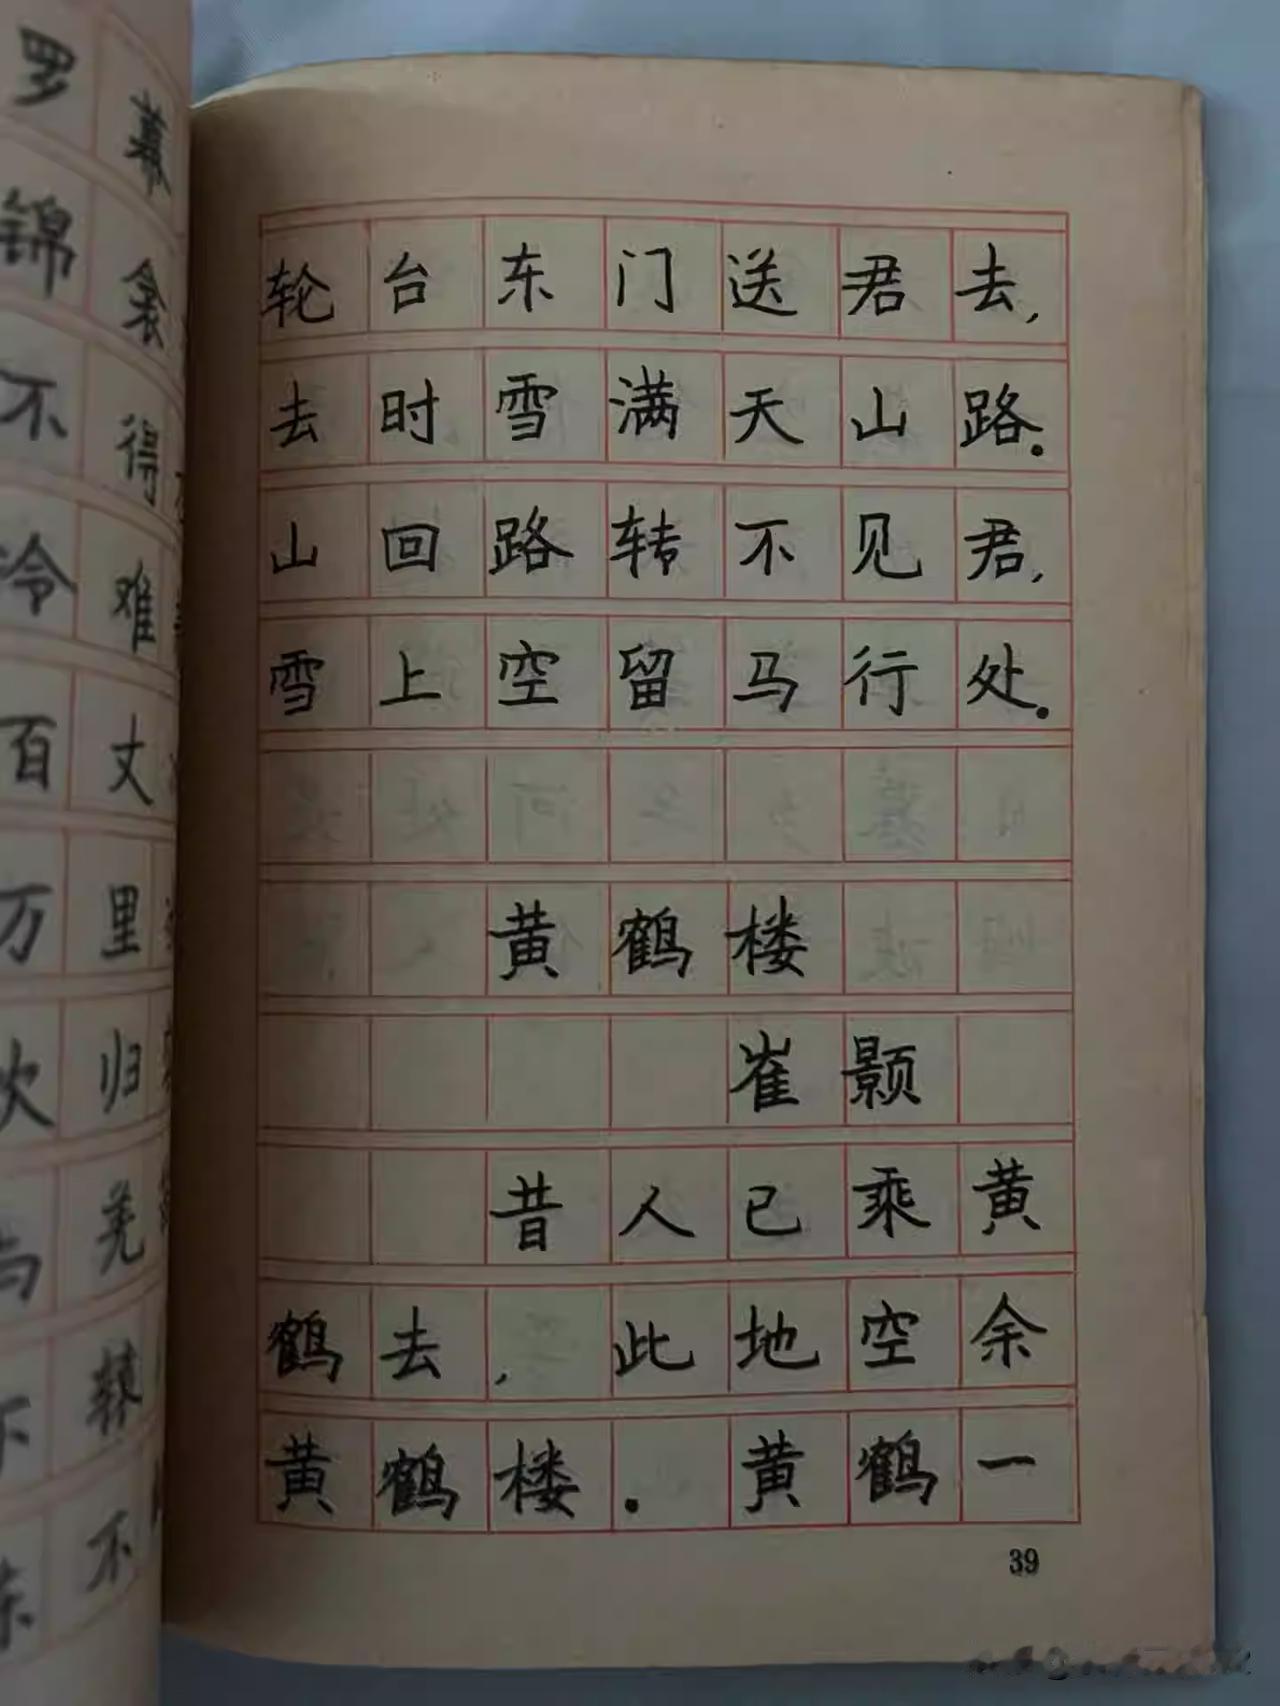 罗 幕
锦 衾
不 得
冷 难
百 丈
万 里
吹 归
羌
辕
不 不
轮台东门送君去，
去时雪满天山路。
山回路转不见君，
雪上空留马行处。
黄鹤楼
崔颢
昔人已乘黄
鹤去，此地空余
黄鹤楼．黄鹤一
39